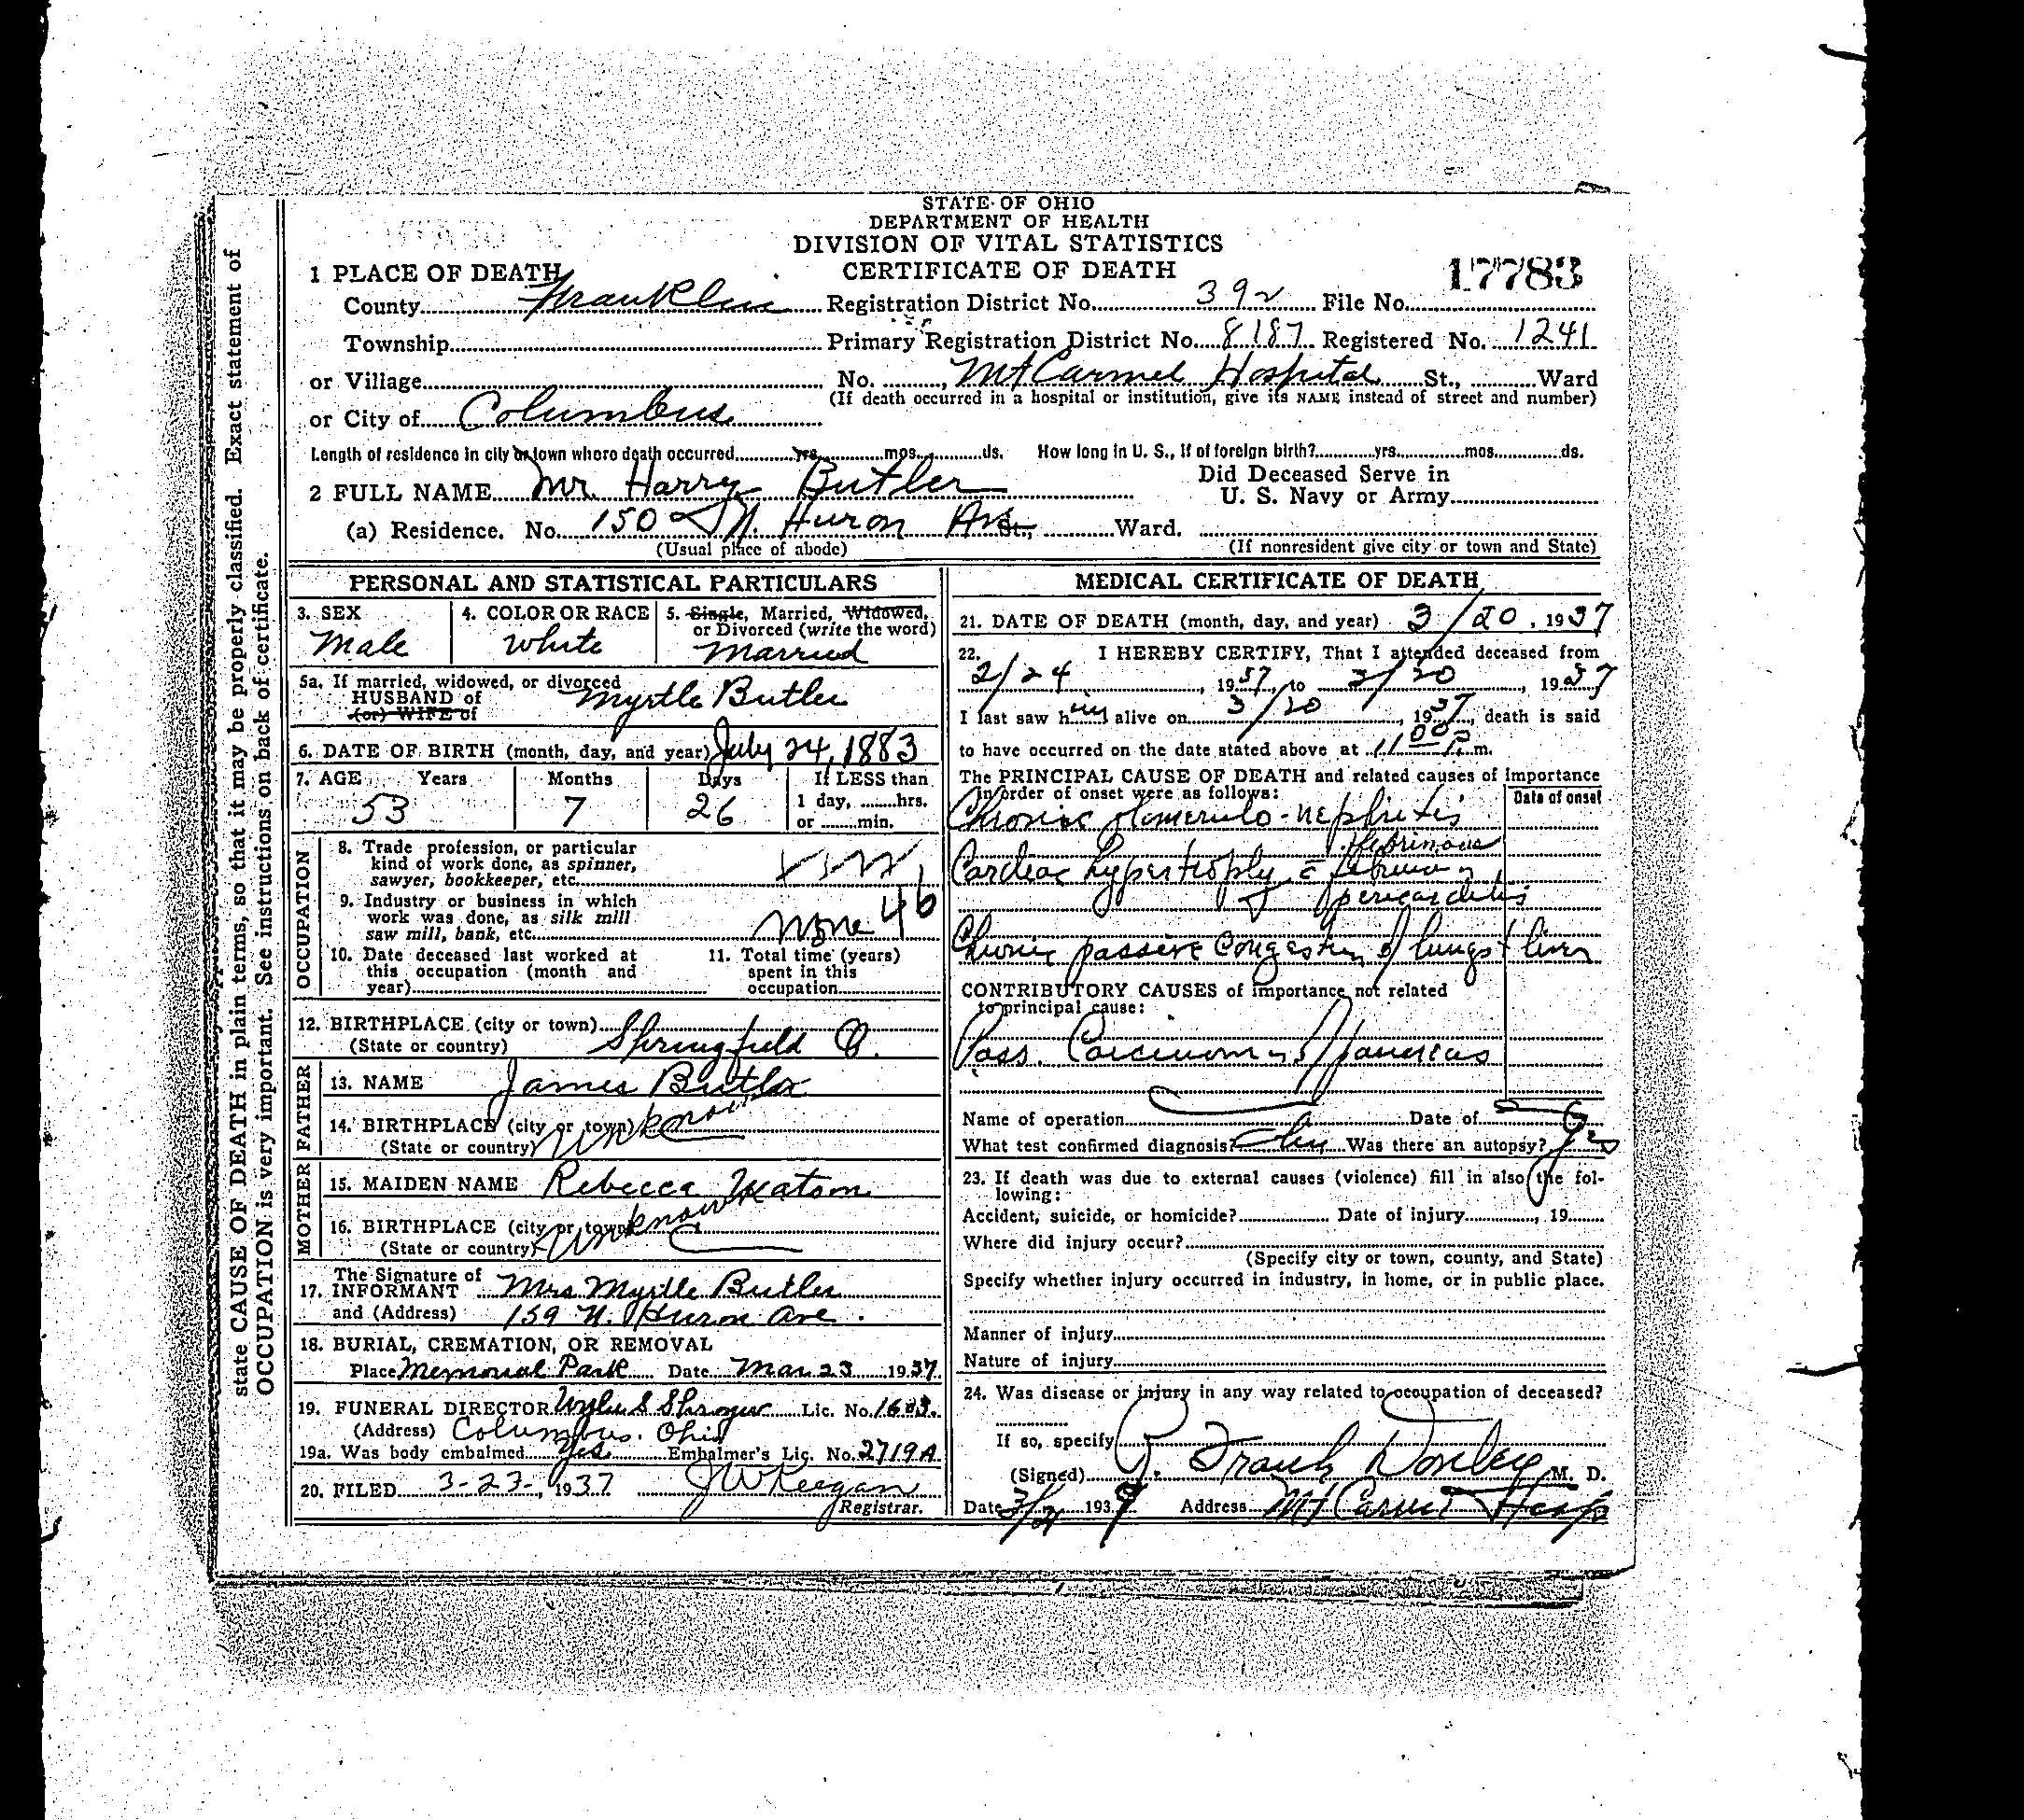 STATE OF OHIO
DEPARTMENT OF HEALTH
DIVISION OF VITAL STATISTICS
CERTIFICATE OF DEATH
17783
1 PLACE OF DEATH
County Franklin Registration District No. 392 File No.
Township Primary Registration District No. 8187 Registered No. 1241
or Village No. , Mt Carmel Hospital St., Ward
(If death occurred in a hospital or institution, give its NAME instead of street and number)
or City of Columbus
Length of residence in city or town where death occurred yrs. mos. ds. How long in U. S., if of foreign birth? yrs. mos. ds.
2 FULL NAME Mr. Harry Butler Did Deceased Serve in
U. S. Navy or Army
(a) Residence. No. N. Huron Ave St., Ward.
(Usual place of abode) (If nonresident give city or town and State)
PERSONAL AND STATISTICAL PARTICULARS
3. SEX 4. COLOR OR RACE 5. Single, Married, Widowed,
or Divorced (write the word)
Male White Married
5a. If married, widowed, or divorced
HUSBAND of Myrtle Butler
(or) WIFE of
6. DATE OF BIRTH (month, day, and year) July 24, 1883
7. AGE Years Months Days If LESS than
53 7 26 1 day, hrs.
or min.
OCCUPATION
8. Trade profession, or particular
kind of work done, as spinner,
sawyer, bookkeeper, etc.
9. Industry or business in which
work was done, as silk mill
saw mill, bank, etc. none 46
10. Date deceased last worked at 11. Total time (years)
this occupation (month and spent in this
year) occupation
12. BIRTHPLACE (city or town) Springfield O.
(State or country)
FATHER
13. NAME James Butler
14. BIRTHPLACE (city or town) unknown
(State or country)
MOTHER
15. MAIDEN NAME Rebecca Watson
16. BIRTHPLACE (city or town) unknown
(State or country)
17. The Signature of INFORMANT Mrs Myrtle Butler
and (Address) 159 N. Huron Ave.
18. BURIAL, CREMATION, OR REMOVAL
Place Memorial Park Date Mar 23 1937
19. FUNERAL DIRECTOR Lic. No. 1603.
(Address) Columbus. Ohio
19a. Was body embalmed Yes Embalmer's Lic. No. 2719A
20. FILED 3-23-, 1937 J W Keegan
Registrar.
MEDICAL CERTIFICATE OF DEATH
21. DATE OF DEATH (month, day, and year) 3/20, 1937
22. I HEREBY CERTIFY, That I attended deceased from
2/24, 1937, to 3/20, 1937
I last saw him alive on 3/20, 1937, death is said
to have occurred on the date stated above at 11 00 P. m.
The PRINCIPAL CAUSE OF DEATH and related causes of importance
in order of onset were as follows: Date of onset
Chronic glomerulo-nephritis
Cardiac hypertrophy c̄
pericarditis
Chronic passive congestion of lungs + liver
CONTRIBUTORY CAUSES of importance not related
to principal cause:
Poss. Carcinoma of Pancreas
Name of operation Date of
What test confirmed diagnosis? Was there an autopsy? yes
23. If death was due to external causes (violence) fill in also the fol-
lowing:
Accident, suicide, or homicide? Date of injury , 19
Where did injury occur?
(Specify city or town, county, and State)
Specify whether injury occurred in industry, in home, or in public place.
Manner of injury
Nature of injury
24. Was disease or injury in any way related to occupation of deceased?
If so, specify
(Signed) Frank Donley M. D.
Date 3/21 1937 Address Mt Carmel Hosp
state CAUSE OF DEATH in plain terms, so that it may be properly classified. Exact statement of
OCCUPATION is very important. See instructions on back of certificate.